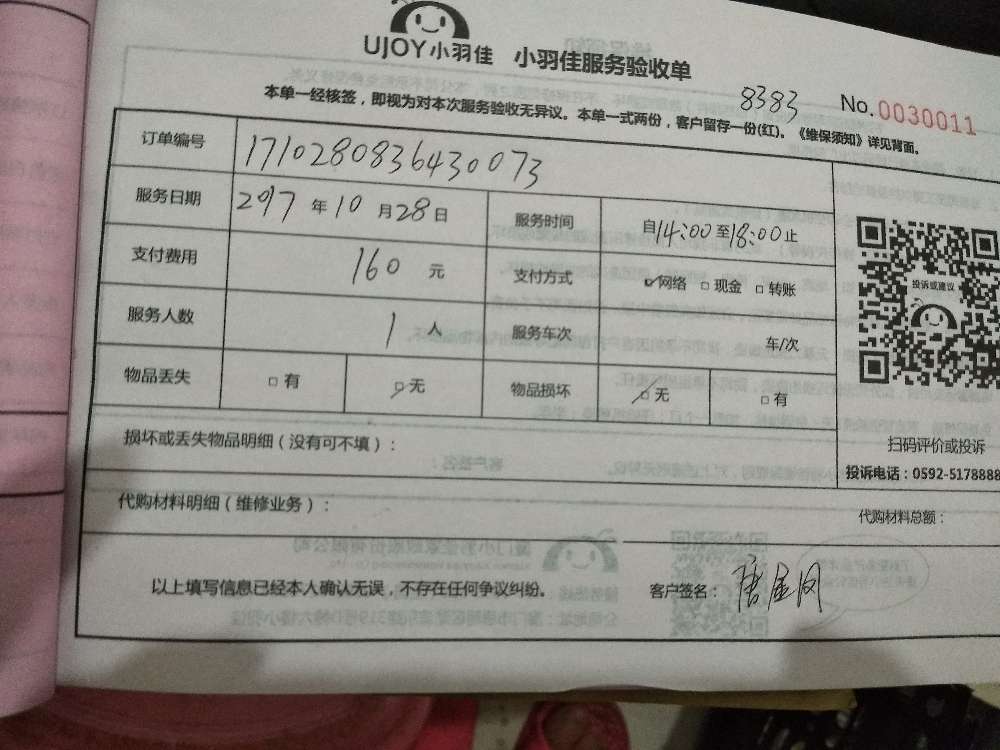 UJOY小羽佳 小羽佳服务验收单
8383 No.0030011
本单一经核签，即视为对本次服务验收无异议。本单一式两份，客户留存一份(红)。《维保须知》详见背面。
订单编号 1710280836430073
服务日期 2017 年 10 月 28 日 服务时间 自14:00至18:00止
支付费用 160 元 支付方式 ☑网络 □现金 □转账
服务人数 1 人 服务车次 车/次
物品丢失 □有 ☑无 物品损坏 ☑无 □有
投诉或建议
扫码评价或投诉
投诉电话：0592-5178888
损坏或丢失物品明细（没有可不填）：
代购材料明细（维修业务）： 代购材料总额：
以上填写信息已经本人确认无误，不存在任何争议纠纷。 客户签名：唐金凤